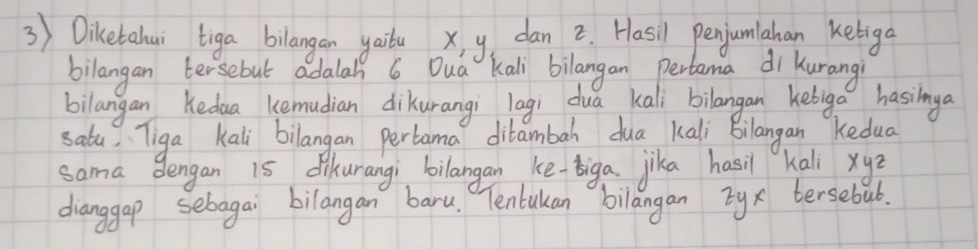 3) Diketahui tiga bilangan yaitu x, y, dan z. Hasil penjumlahan ketiga
bilangan tersebut adalah 6 Dua kali bilangan pertama di kurangi
bilangan kedua kemudian dikurangi lagi dua kali bilangan ketiga hasilnya
satu. Tiga kali bilangan pertama ditambah dua kali bilangan kedua
sama dengan 15 dikurangi bilangan ke-tiga. jika hasil kali xyz
dianggap sebagai bilangan baru. Tentukan bilangan zyx tersebut.